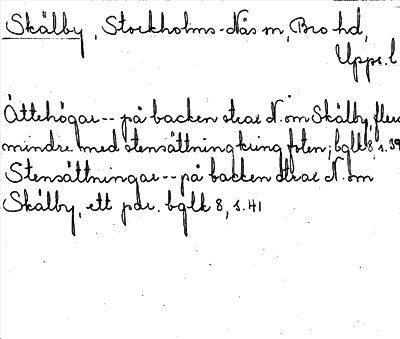 Skälby, Stockholms-Näs sn, Bro hd,
Uppl.
Ättehögar -- på backen strax N. om Skälby, flera
mindre med stensättning kring foten; bglk 8, s. 39
Stensättningar -- på backen strax N. om
Skälby, ett par. bglk 8, s. 41